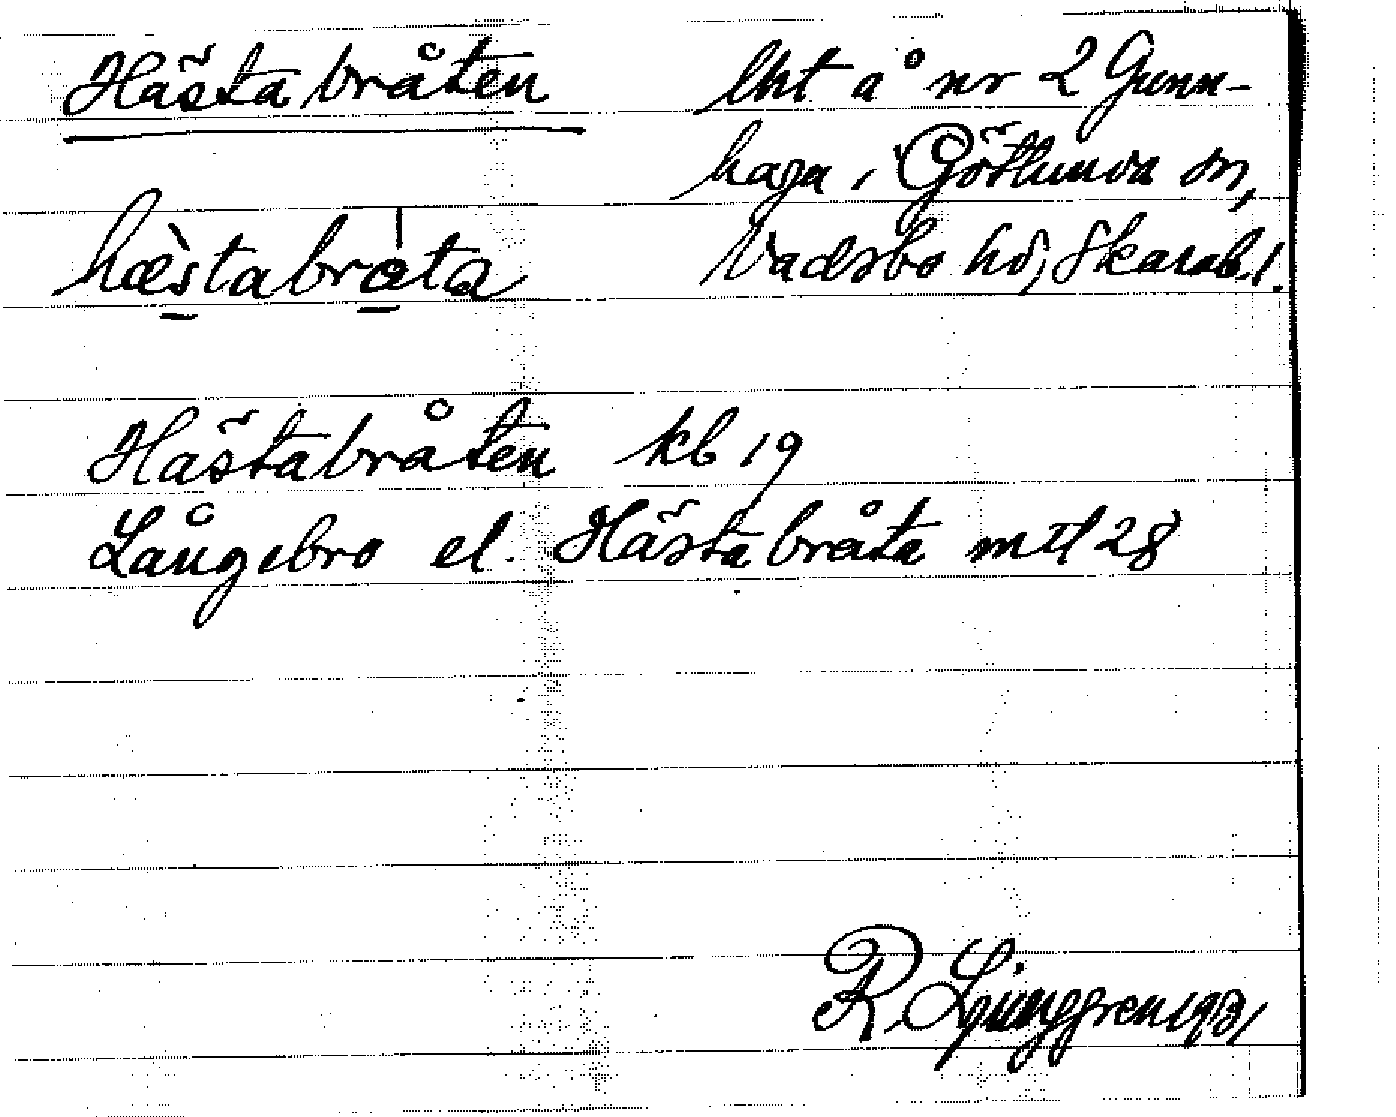 Hästabråten
lht å nr 2 Gunn-
haga i Götlunda sn,
Vadsbo hd, Skarab. l.
hæ̀stabrå̀ta
Hästabråten kb 19
Långebro el. Hästabråta mtl 28
R. Ljunggren 1931